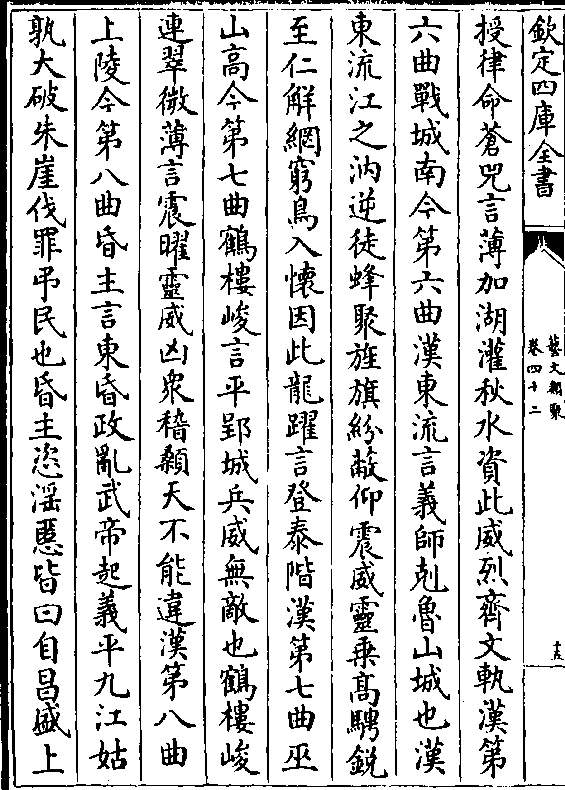 欽定四庫全書
藝文類聚
卷四十二
十五
授律命蒼兕言薄加湖灌秋水資此威烈齊文軌漢第
六曲戰城南今第六曲漢東流言義師剋魯山城也漢
東流江之汭逆徒蜂聚旌旗紛蔽仰震威靈乘髙騁銳
至仁解網窮鳥入懷因此龍躍言登泰階漢第七曲巫
山高今第七曲鶴樓峻言平郢城兵威無敵也鶴樓峻
連翠微薄言震曜靈威凶衆稽顙天不能違漢第八曲
上陵今第八曲昏主言東昏政亂武帝起義平九江姑
孰大破朱崖伐罪弔民也昏主恣淫慝皆曰自昌盛上